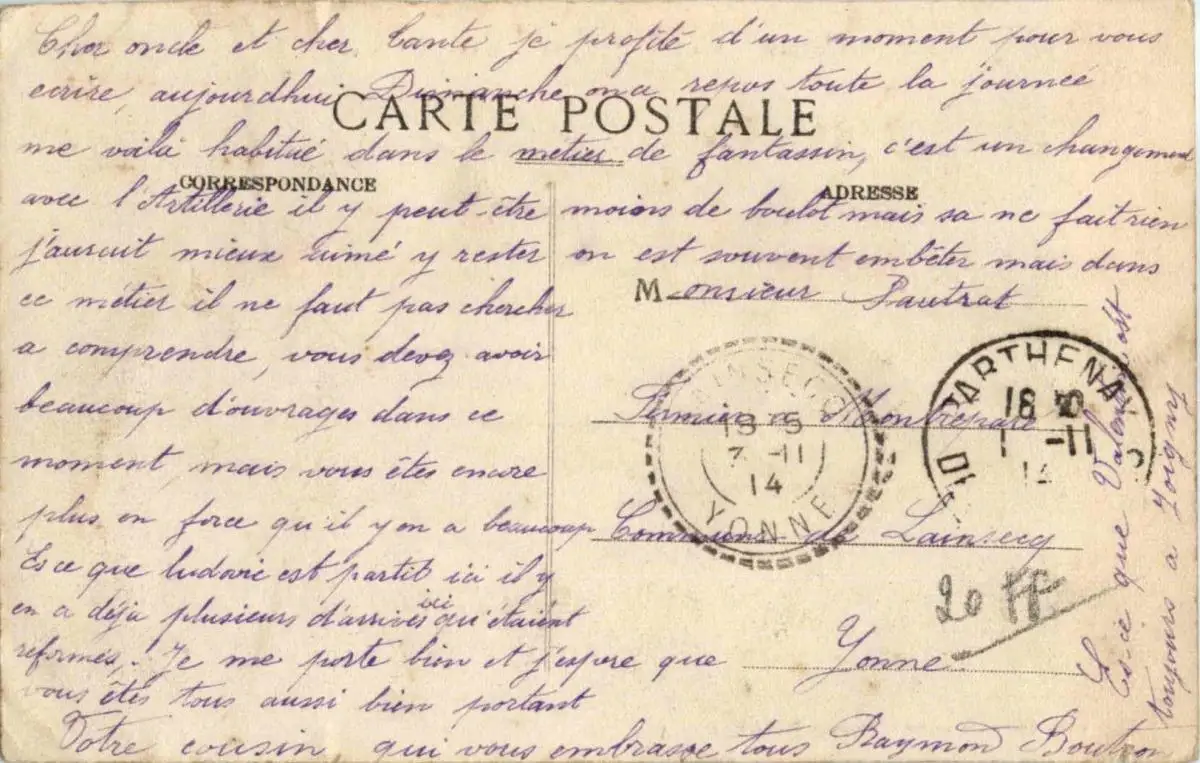 Cher oncle et cher tante je profite d'un moment pour vous
ecrire, aujourdhui Dimanche on a repos toute la journée
CARTE POSTALE
me voila habitué dans le métier de fantassin, c'est un changement
CORRESPONDANCE
ADRESSE
avec l'Artillerie il y peut-être moins de boulot mais sa ne fait rien
j'aurait mieux aimé y rester on est souvent embêter mais dans
ce métier il ne faut pas chercher
a comprendre, vous devez avoir
beaucoup d'ouvrages dans ce
moment, mais vous êtes encore
plus en force qu'il y en a beaucoup
Es ce que ludovic est partit ici il y
en a déja plusieurs d'arrivés ici qu'étaient
reformés. Je me porte bien et j'espere que
vous êtes tous aussi bien portant
Votre cousin qui vous embrasse tous Raymond Boutron
Monsieur Pautrat
Fermier a Montrepare
Commune de Lainsecq
Yonne
Es-ce que Valentin est
toujours a Joigny
LAINSECQ
18 5
7 -11
14
YONNE
PARTHENAY
18
1 -11
14
20 FF